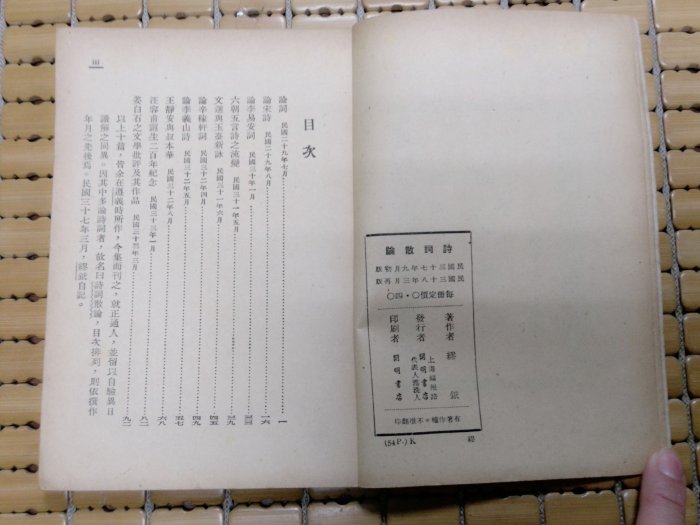 目次
論詞 民國二十九年七月 一
論宋詩 民國二十九年八月 一六
論李易安詞 民國三十年一月 三三
六朝五言詩之流變 民國三十一年五月 三九
文選與玉臺新詠 民國三十一年六月 四五
論辛稼軒詞 民國三十二年四月 四九
論李義山詩 民國三十二年五月 五七
王靜安與叔本華 民國三十二年八月 六八
汪容甫誕生二百年紀念 民國三十三年一月 八二
姜白石之文學批評及其作品 民國三十三年三月 九二
以上十篇,皆余在遵義時所作,今集而刊之,就正通人,並留以自驗異日
識解之同異。因其中多論詩詞者,故名曰詩詞散論,目次排列,則依撰作
年月之先後焉。民國三十七年三月,繆鉞自記。
III
論散詞詩
版初月九年七十三國民
版再月三年八十三國民
每冊定價〇·四〇
著作者 繆鉞
發行者 上海福州路 開明書店 代表人范洗人
印刷者 開明書店
有著作權*不准翻印
(54P.)K
繆